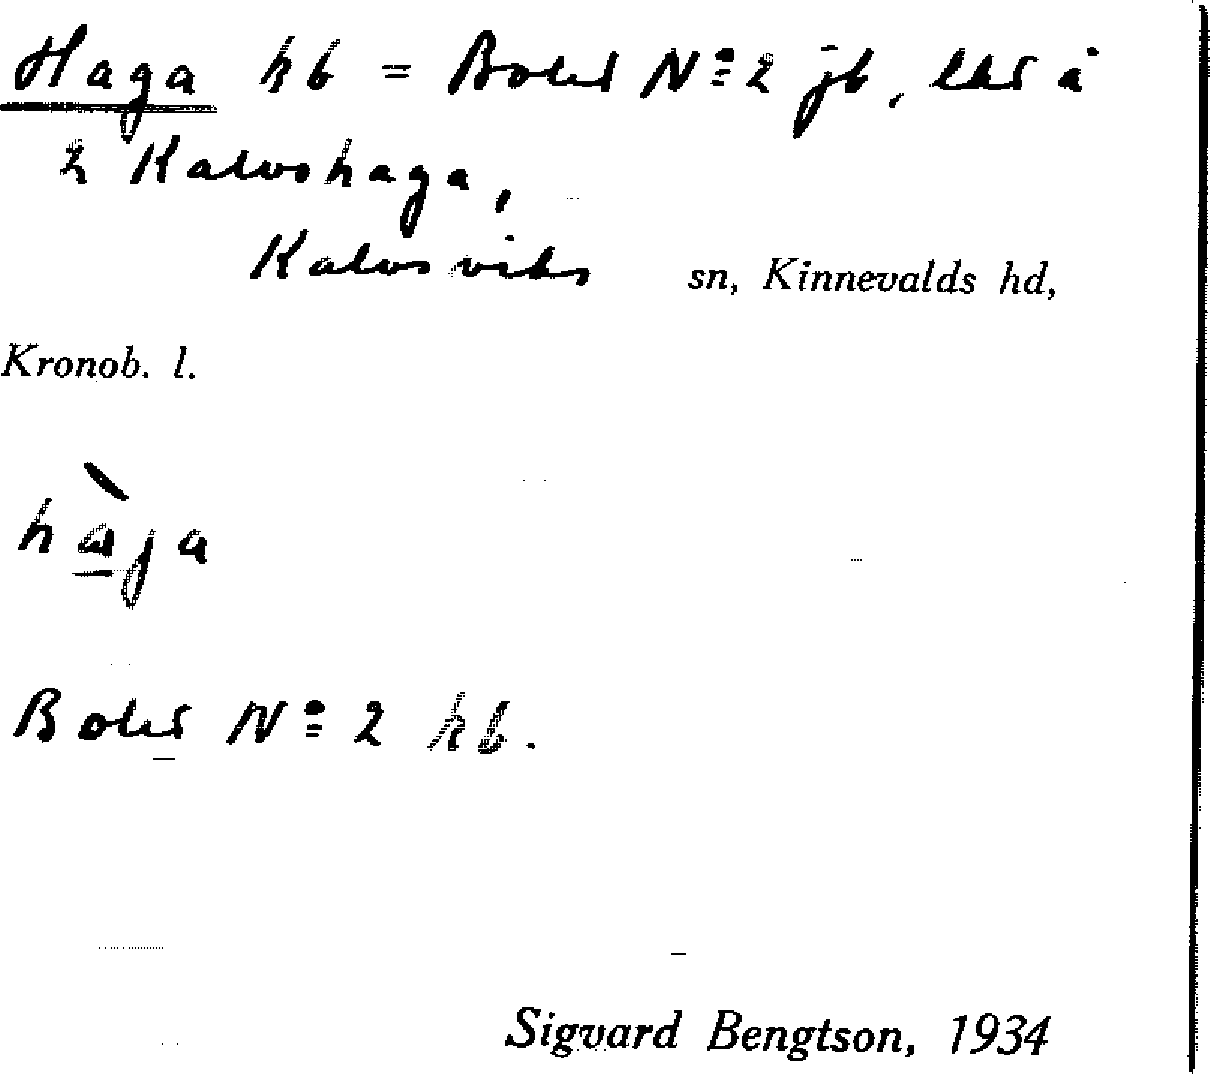 Haga hb = Boket Nº 2 jb, lht å
2 Kalvshaga,
Kalvsviks sn, Kinnevalds hd,
Kronob. l.
hàga
Boket Nº 2 hb.
Sigvard Bengtson, 1934